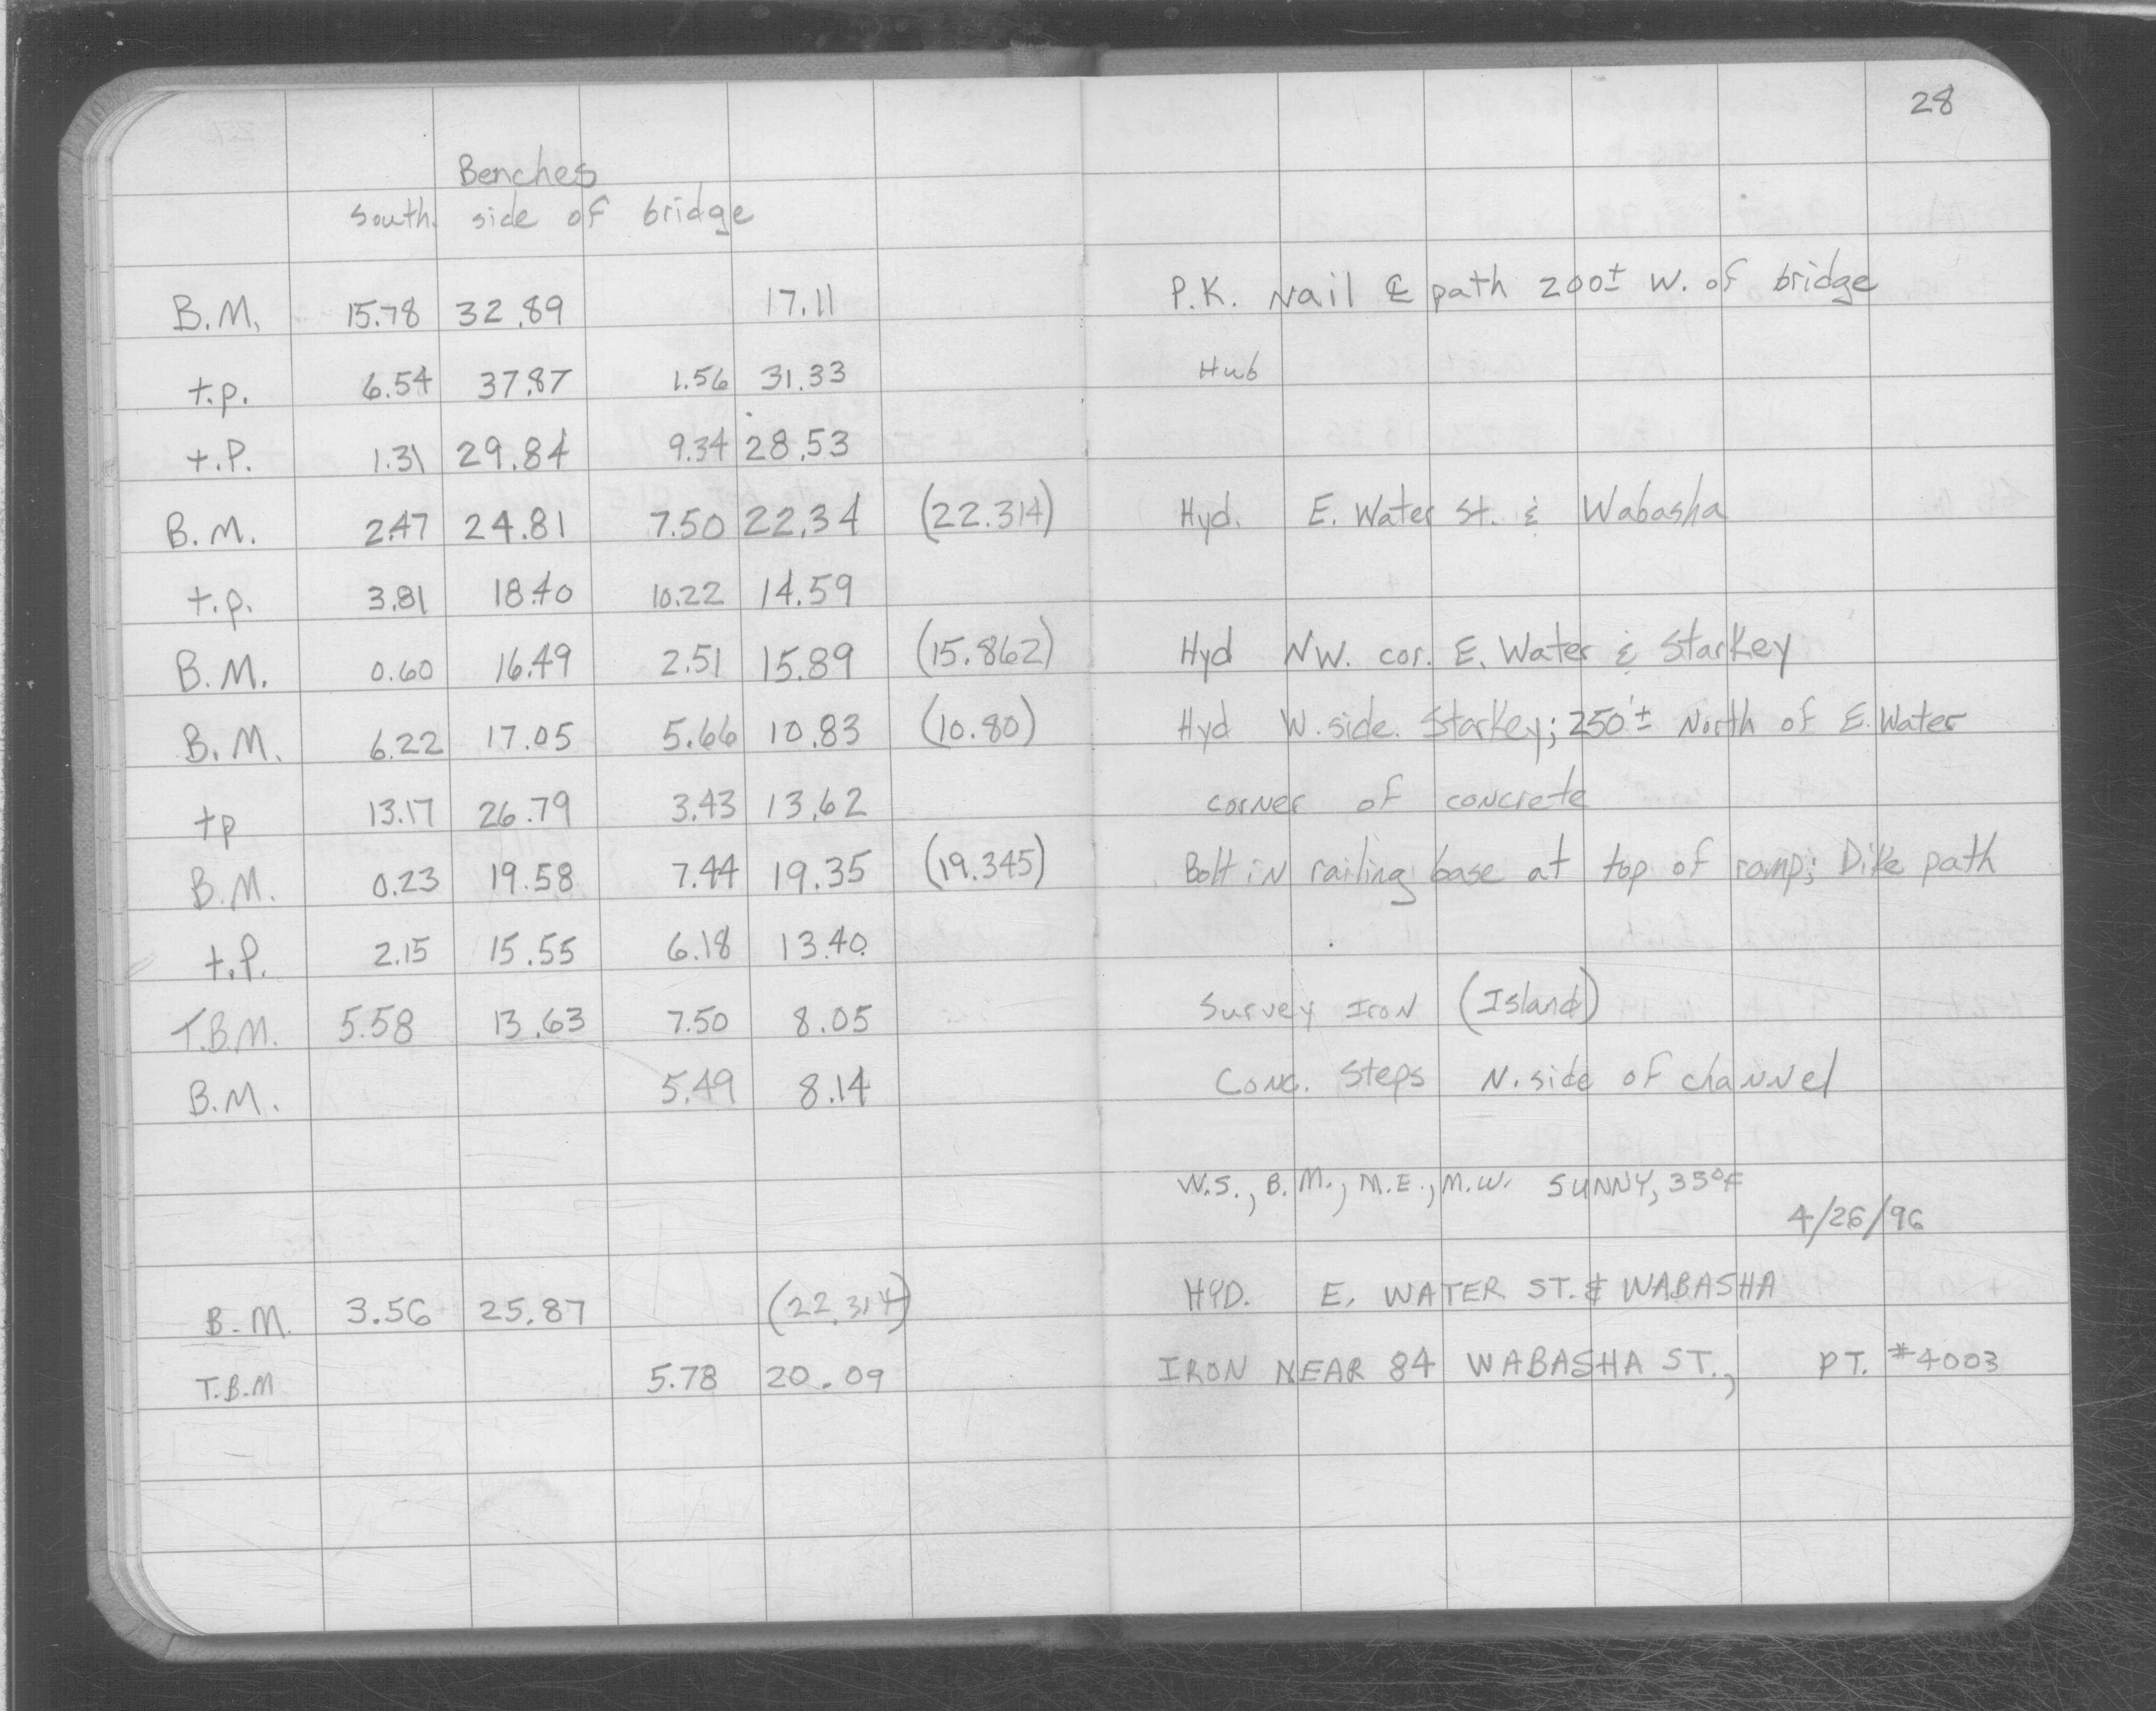 28
Benches
South side of bridge
B.M. 15.78 32.89 17.11 P.K. Nail ℄ path 200± W. of bridge
t.p. 6.54 37.87 1.56 31.33 Hub
t.P. 1.31 29.84 9.34 28.53
B.M. 2.47 24.81 7.50 22.34 (22.314) Hyd. E. Water St. & Wabasha
t.p. 3.81 18.40 10.22 14.59
B.M. 0.60 16.49 2.51 15.89 (15.862) Hyd NW. cor. E. Water & Starkey
B.M. 6.22 17.05 5.66 10.83 (10.80) Hyd W. side. Starkey; 250'± North of E. Water
tp 13.17 26.79 3.43 13.62 corner of concrete
B.M. 0.23 19.58 7.44 19.35 (19.345) Bolt in railing base at top of ramp; Dike path
t.P. 2.15 15.55 6.18 13.40
T.B.M. 5.58 13.63 7.50 8.05 Survey Iron (Island)
B.M. 5.49 8.14 Conc. Steps N. side of channel
W.S., B.M., M.E., M.W. SUNNY, 35°F
4/26/96
B.M. 3.56 25.87 (22.314) HYD. E. WATER ST. & WABASHA
T.B.M 5.78 20.09 IRON NEAR 84 WABASHA ST., PT. #4003